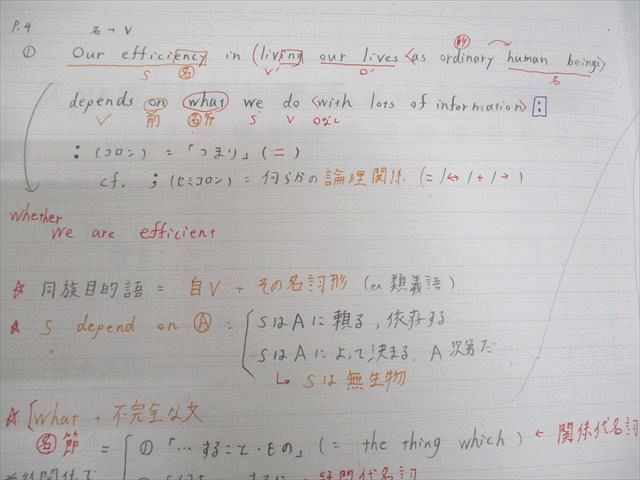 P.4 名→V
① Our efficiency in (living our lives <as ordinary human beings>
S 名 V' O' 名
depends on what we do <with lots of information> :
V 前 名節 S V Oなし
: (コロン) = 「つまり」(=)
cf. ; (セミコロン) = 何らかの論理関係 (= / ↔ / + / →)
whether
we are efficient
☆ 同族目的語 = 自V + その名詞形 (or 類義語)
☆ S depend on Ⓐ : SはAに頼る, 依存する
SはAによって決まる, A次第だ
↳ Sは無生物
☆ [What + 不完全な文
名節 = ① 「…すること・もの」(= the thing which) ← 関係代名詞
疑問代名詞